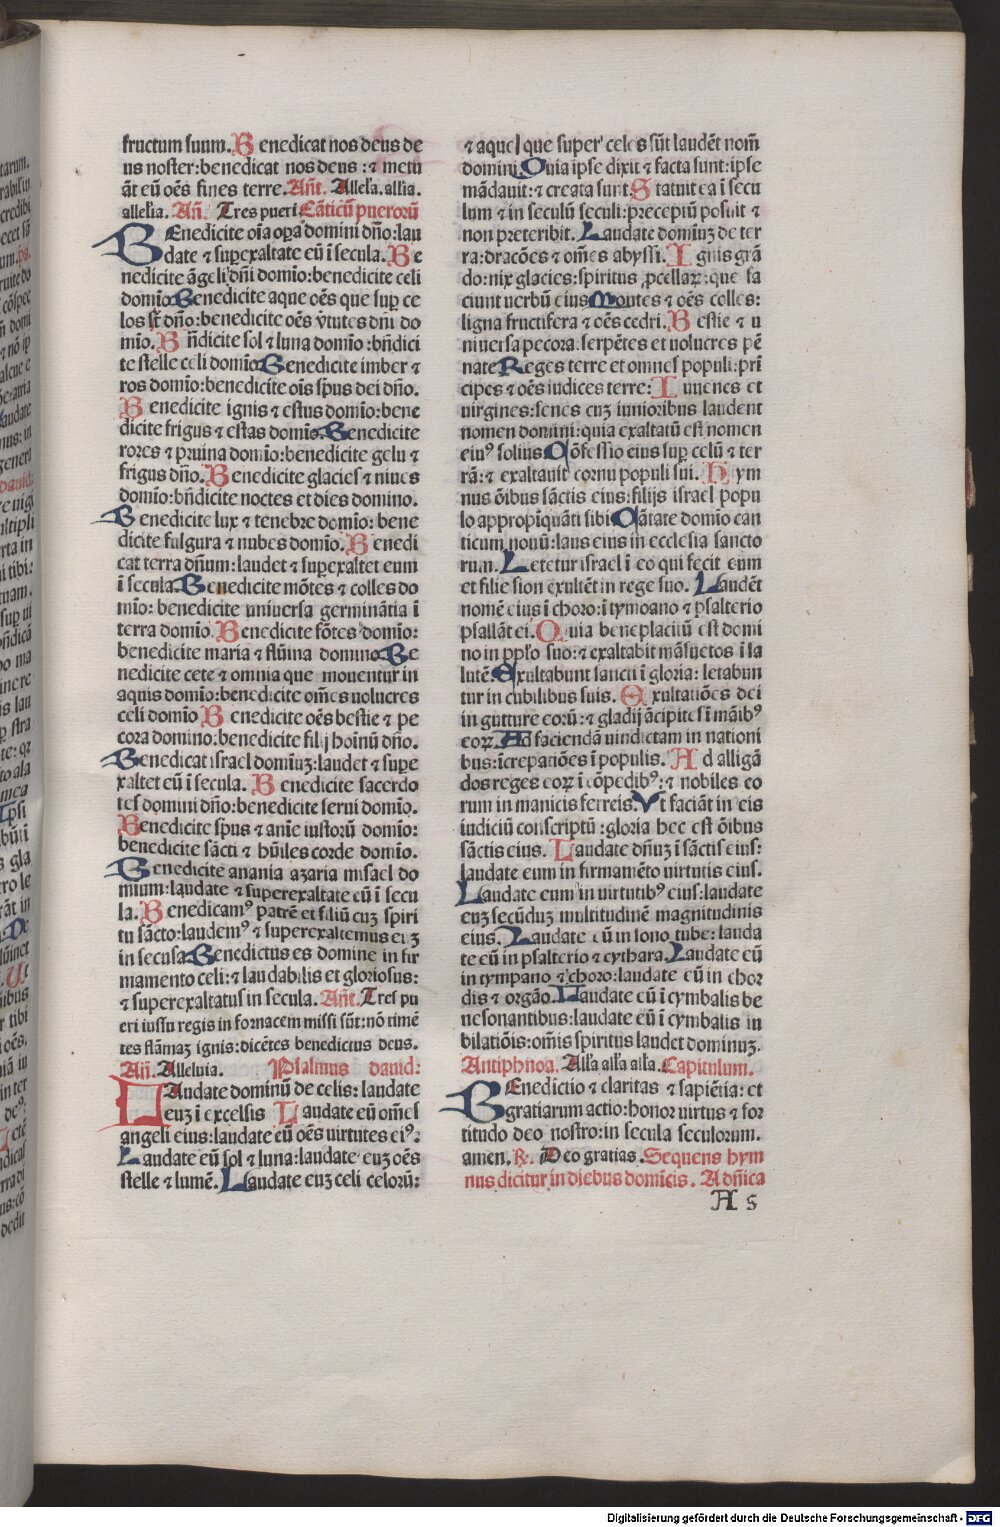 fructum suum. Benedicat nos deus de
us noster: benedicat nos deus: ⁊ metu
āt eū oēs fines terre. Añt. Allel'a. all'ia.
allel'ia. Añ. Tres pueri Cāticū puerorū
BEnedicite oīa oꝑa domini dño: lau
date ⁊ suꝑexaltate eū ī secula. Be
nedicite āgeli dñi domīo: benedicite celi
domīo Benedicite aque oēs que suꝑ ce
los st̄ dño: benedicite oēs v̄tutes dñi do
mīo. Bn̄dicite sol ⁊ luna domīo: bn̄dici
te stelle celi domīo Benedicite imber ⁊
ros domīo: benedicite oīs sp̄us dei dño.
Benedicite ignis ⁊ estus domīo: bene
dicite frigus ⁊ estas domīo. Benedicite
rores ⁊ pruina domīo: benedicite gelu ⁊
frigus dño. Benedicite glacies ⁊ niues
domīo: bn̄dicite noctes et dies domino.
Benedicite lux ⁊ tenebre domīo: bene
dicite fulgura ⁊ nubes domīo. Benedi
cat terra dñum: laudet ⁊ suꝑexaltet eum
ī secula. Benedicite mōtes ⁊ colles do
mīo: benedicite uniuersa germināntia ī
terra domīo. Benedicite fōtes domīo:
benedicite maria ⁊ flūina domino Be
nedicite cete ⁊ omnia que mouentur in
aquis domīo: benedicite om̄es uolucres
celi domīo Benedicite oēs bestie ⁊ pe
cora domino: benedicite filij hoīnū dño.
Benedicat israel domīuꝫ: laudet ⁊ supe
xaltet eū ī secula. Benedicite sacerdo
tes domini dño: benedicite serui domīo.
Benedicite sp̄us ⁊ anīe iustorū domīo:
benedicite sācti ⁊ hūiles corde domīo.
Benedicite anania azaria misael do
mium: laudate ⁊ superexaltate eū ī secu
la. Benedicamꝰ patrē et filiū cuꝫ spiri
tu sācto: laudemꝰ ⁊ superexaltemus euꝫ
in secula. Benedictus es domine in fir
mamento celi: ⁊ laudabilis et gloriosus:
⁊ superexaltatus in secula. Añt. Tres pu
eri iussu regis in fornacem missi sūt: nō timē
tes flāmaꝫ ignis: dicētes benedictus deus.
Añ. Alleluia. Psalmus dauid:
LAudate dominū de celis: laudate
euꝫ ī excelsis Laudate eū om̄es
angeli eius: laudate eū oēs uirtutes eiꝰ:
Laudate eū sol ⁊ luna: laudate euꝫ oēs
stelle ⁊ lumē. Laudate euꝫ celi celorū:
⁊ aque que super celes sūt laudēt nom̄
domini. Quia ipse dixit ⁊ facta sunt: ipse
mādauit: ⁊ creata sunt Statuit ea ī secu
lum ⁊ in seculū seculi: preceptū posuit ⁊
non preteribit. Laudate domīuꝫ de ter
ra: dracōes ⁊ om̄es abyssi. Ignis grā
do: nix glacies: spiritus ꝓcellaꝝ: que fa
ciunt uerbū eius Montes ⁊ oēs colles:
ligna fructifera ⁊ oēs cedri. Bestie ⁊ u
niuersa pecora: serpētes et uolucres pē
nate Reges terre et omnes populi: prī
cipes ⁊ oēs iudices terre: Iuuenes et
uirgines: senes cuꝫ iunioribus laudent
nomen domini: quia exaltatū est nomen
eiuꝰ solius Cōfessio eius suꝑ celū ⁊ ter
rā: ⁊ exaltauit cornu populi sui. Hym
nus ōibus sāctis eius: filijs israel popu
lo appropīquāti sibi Cātate domīo can
ticum nouū: laus eius in ecclesia sancto
rum. Letetur israel ī eo qui fecit eum
et filie sion exultēt in rege suo. Laudēt
nomē eius ī choro: ī tympano ⁊ psalterio
psallāt ei. Quia beneplacitū est domi
no in pp̄lo suo: ⁊ exaltabit māsuetos ī sa
lutē. Exultabunt sancti ī gloria: letabun
tur in cubilibus suis. Exultatiōes dei
in gutture eorū: ⁊ gladij ācipites ī māibꝰ
eoꝝ. Ad faciendā uindictam in nationi
bus: īcrepatiōes ī populis. Ad alligā
dos reges eoꝝ ī cōpedibꝰ: ⁊ nobiles eo
rum in manicis ferreis. Vt faciāt in eis
iudiciū conscriptū: gloria hec est ōibus
sāctis eius. Laudate dñuꝫ ī sāctis eius:
laudate eum in firmamēto uirtutis eius.
Laudate eum in uirtutibꝰ eius: laudate
euꝫ secūduꝫ multitudinē magnitudinis
eius. Laudate eū in sono tube: lauda
te eū in psalterio ⁊ cythara. Laudate eū
in tympano ⁊ choro: laudate eū in chor
dis ⁊ orgāo. Laudate eū ī cymbalis be
nesonantibus: laudate eū ī cymbalis iu
bilatiōis: om̄is spiritus laudet dominuꝫ.
Antiphona. All'a all'a all'a. Capitulum.
BEnedictio ⁊ claritas ⁊ sapiētia: et
gratiarum actio: honor uirtus ⁊ for
titudo deo nostro: in secula seculorum.
amen. ℟. Deo gratias. Sequens hym
nus dicitur in diebus domīcis. Ad n̄ica
A 5
Digitalisierung gefördert durch die Deutsche Forschungsgemeinschaft - DFG